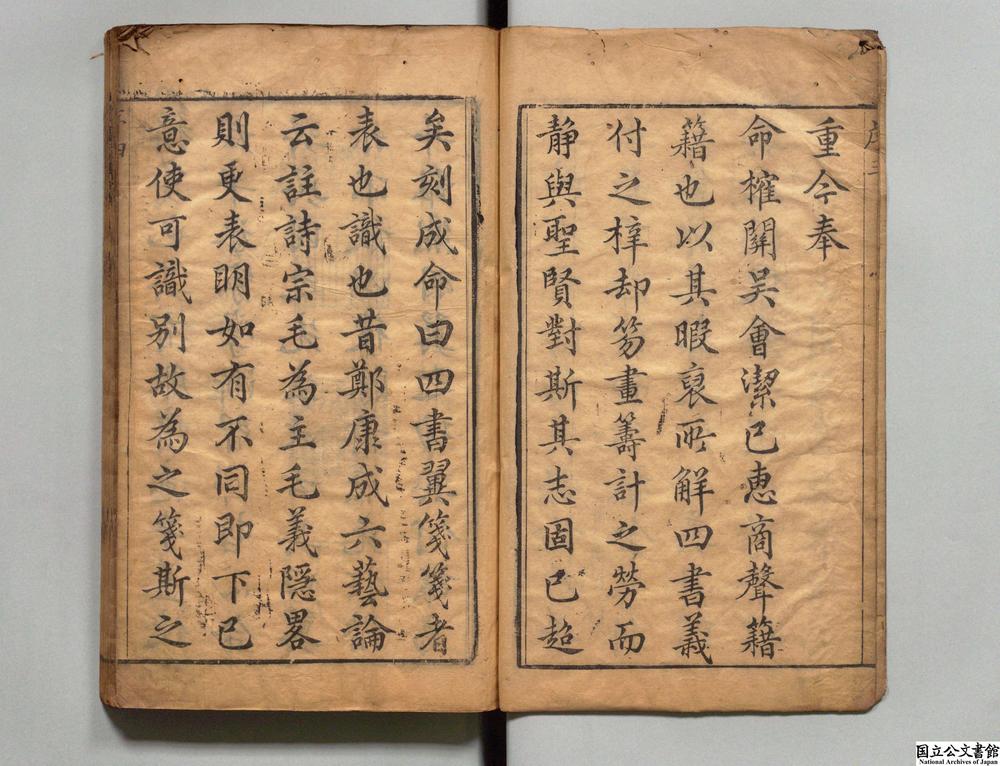 重今奉
命榷關吴會潔已惠商聲籍
籍也以其暇裒所解四書義
付之梓却笏畫籌計之勞而
静與聖賢對斯其志固已超
矣刻成命曰四書翼箋箋者
表也識也昔鄭康成六藝論
云註詩宗毛為主毛義隱畧
則更表明如有不同即下已
意使可識别故為之箋斯之
国立公文書館
National Archives of Japan